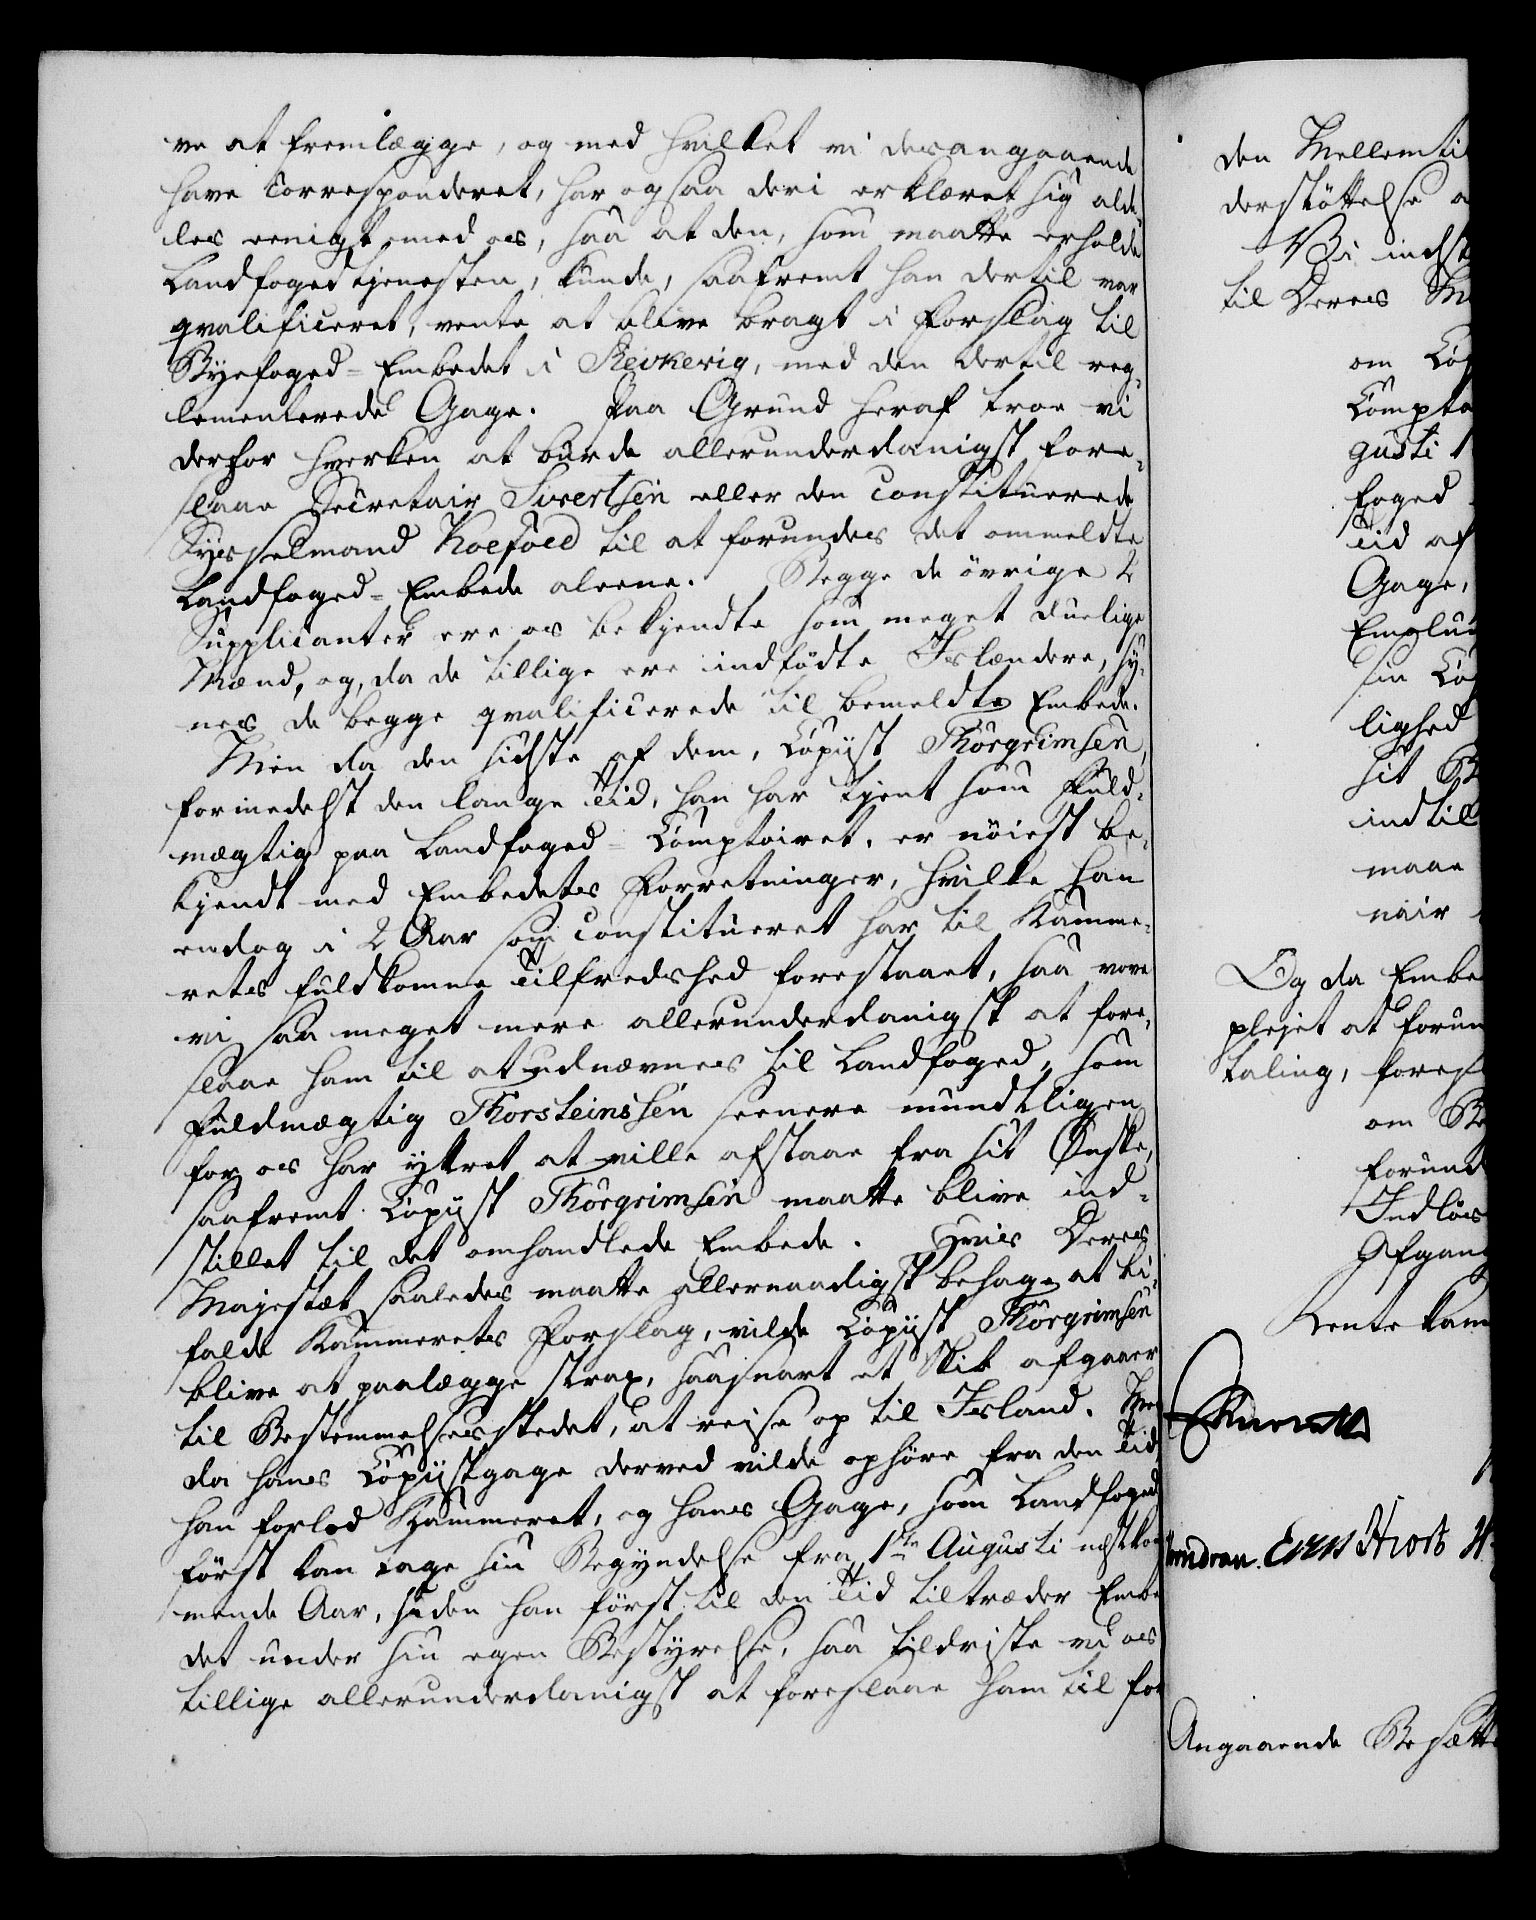 ve at fremlægge, og med hvilket vi desangaaende
have corresponderet, har ogsaa deri erklæret sig alde-
les eenigt med os, saa at den, som maatte erholde
Landfogedtjenesten, kunde, saafremt han dertil var
qvalificeret, vente at blive bragt i Forslag til
Byefoged-Embedet i Reikevig, med den dertil reg-
lementerede Gage. Paa Grund heraf troe vi
derfor hverken at burde allerunderdanigst fore-
slaae Secretair Sivertsen eller den constituerede
Sysselmand Koefoed til at forundes det ommeldte
Landfoged-Embede aleene. Begge de övrige 2
Supplicanter ere os bekjendte som meget duelige
Mænd, og, da de tillige ere indfödte Islændere, sy-
nes de begge qvalificerede til bemeldte Embede.
Men da den sidste af dem, Copiist Thorgrimsen,
formedelst den lange Tid, han har tjent som Fuld-
mægtig paa Landfoged-Comptoiret, er nöiest be-
kjendt med Embedets Forretninger, hvilke han
endog i 2 Aar som constitueret har til Kamme-
rets fuldkomne Tilfredshed forestaaet, saa vove
vi saa meget mere allerunderdanigst at fore-
slaae ham til at udnævnes til Landfoged, som
Fuldmægtig Thorsteinssen seenere mundtligen
for os har yttret at ville afstaae fra sit Önske,
saafremt Copiist Thorgrimsen maatte blive ind-
stillet til det omhandlede Embede. Hvis Deres
Majestæt saaledes maatte allernaadigst behage at bi-
falde Kammerets Forslag, vilde Copiist Thorgrimsen
blive at paalægge strax, saasnart et Skib afgaaer
til Bestemmelsesstedet, at reise op til Island. Men
da hans Copiistgage derved vilde ophöre fra den Tid,
han forlod Kammeret, og hans Gage, som Landfoged
först kan tage sin Begyndelse fra 1te Augusti nestkom-
mende Aar, siden han först til den Tid tiltræder Embe-
det under sin egen Bestyrelse, saa fildriste vi os
tillige allerunderdanigst at foreslaae ham til for
den Mellemti
derstöttelse a
Vi indst
til Deres M
om Cop
Compto
gusti 1
foged
Tid af
Gage,
Emolu
sin Co
lighed
sit B
indtil
maae
nair
Og da Embe
plejet at forun
taling, fores
om Be
forund
Indlös
Afgang
Rentekam
Angaaende Besætte